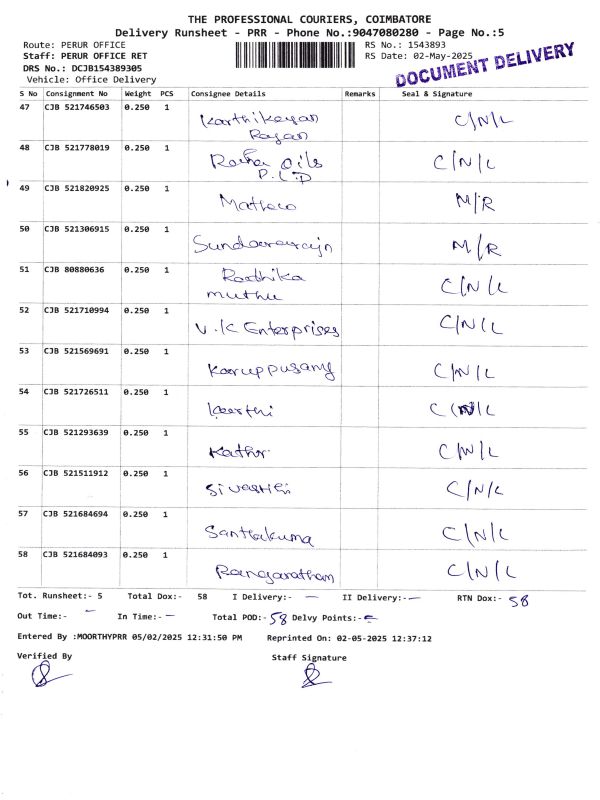 THE PROFESSIONAL COURIERS, COIMBATORE
Delivery Runsheet - PRR - Phone No.:9047080280 - Page No.:5
Route: PERUR OFFICE RS No.: 1543893
Staff: PERUR OFFICE RET RS Date: 02-May-2025
DRS No.: DCJB154389305
Vehicle: Office Delivery
DOCUMENT DELIVERY
S No Consignment No Weight PCS Consignee Details Remarks Seal & Signature
47 CJB 521746503 0.250 1 Karthikeyan C/N/L
Rajan
48 CJB 521778019 0.250 1 Oils C/N/L
49 CJB 521820925 0.250 1 M/R
50 CJB 521306915 0.250 1 M/R
51 CJB 80880636 0.250 1 Radhika C/N/L
muthu
52 CJB 521710994 0.250 1 V.K Enterprises C/N/L
53 CJB 521569691 0.250 1 Karuppusamy C/N/L
54 CJB 521726511 0.250 1 Keerthi C/N/L
55 CJB 521293639 0.250 1 Kathir C/N/L
56 CJB 521511912 0.250 1 C/N/L
57 CJB 521684694 0.250 1 C/N/L
58 CJB 521684093 0.250 1 C/N/L
Tot. Runsheet:- 5 Total Dox:- 58 I Delivery:- - II Delivery:- - RTN Dox:- 58
Out Time:- - In Time:- - Total POD:- 58 Delvy Points:- -
Entered By :MOORTHYPRR 05/02/2025 12:31:50 PM Reprinted On: 02-05-2025 12:37:12
Verified By Staff Signature